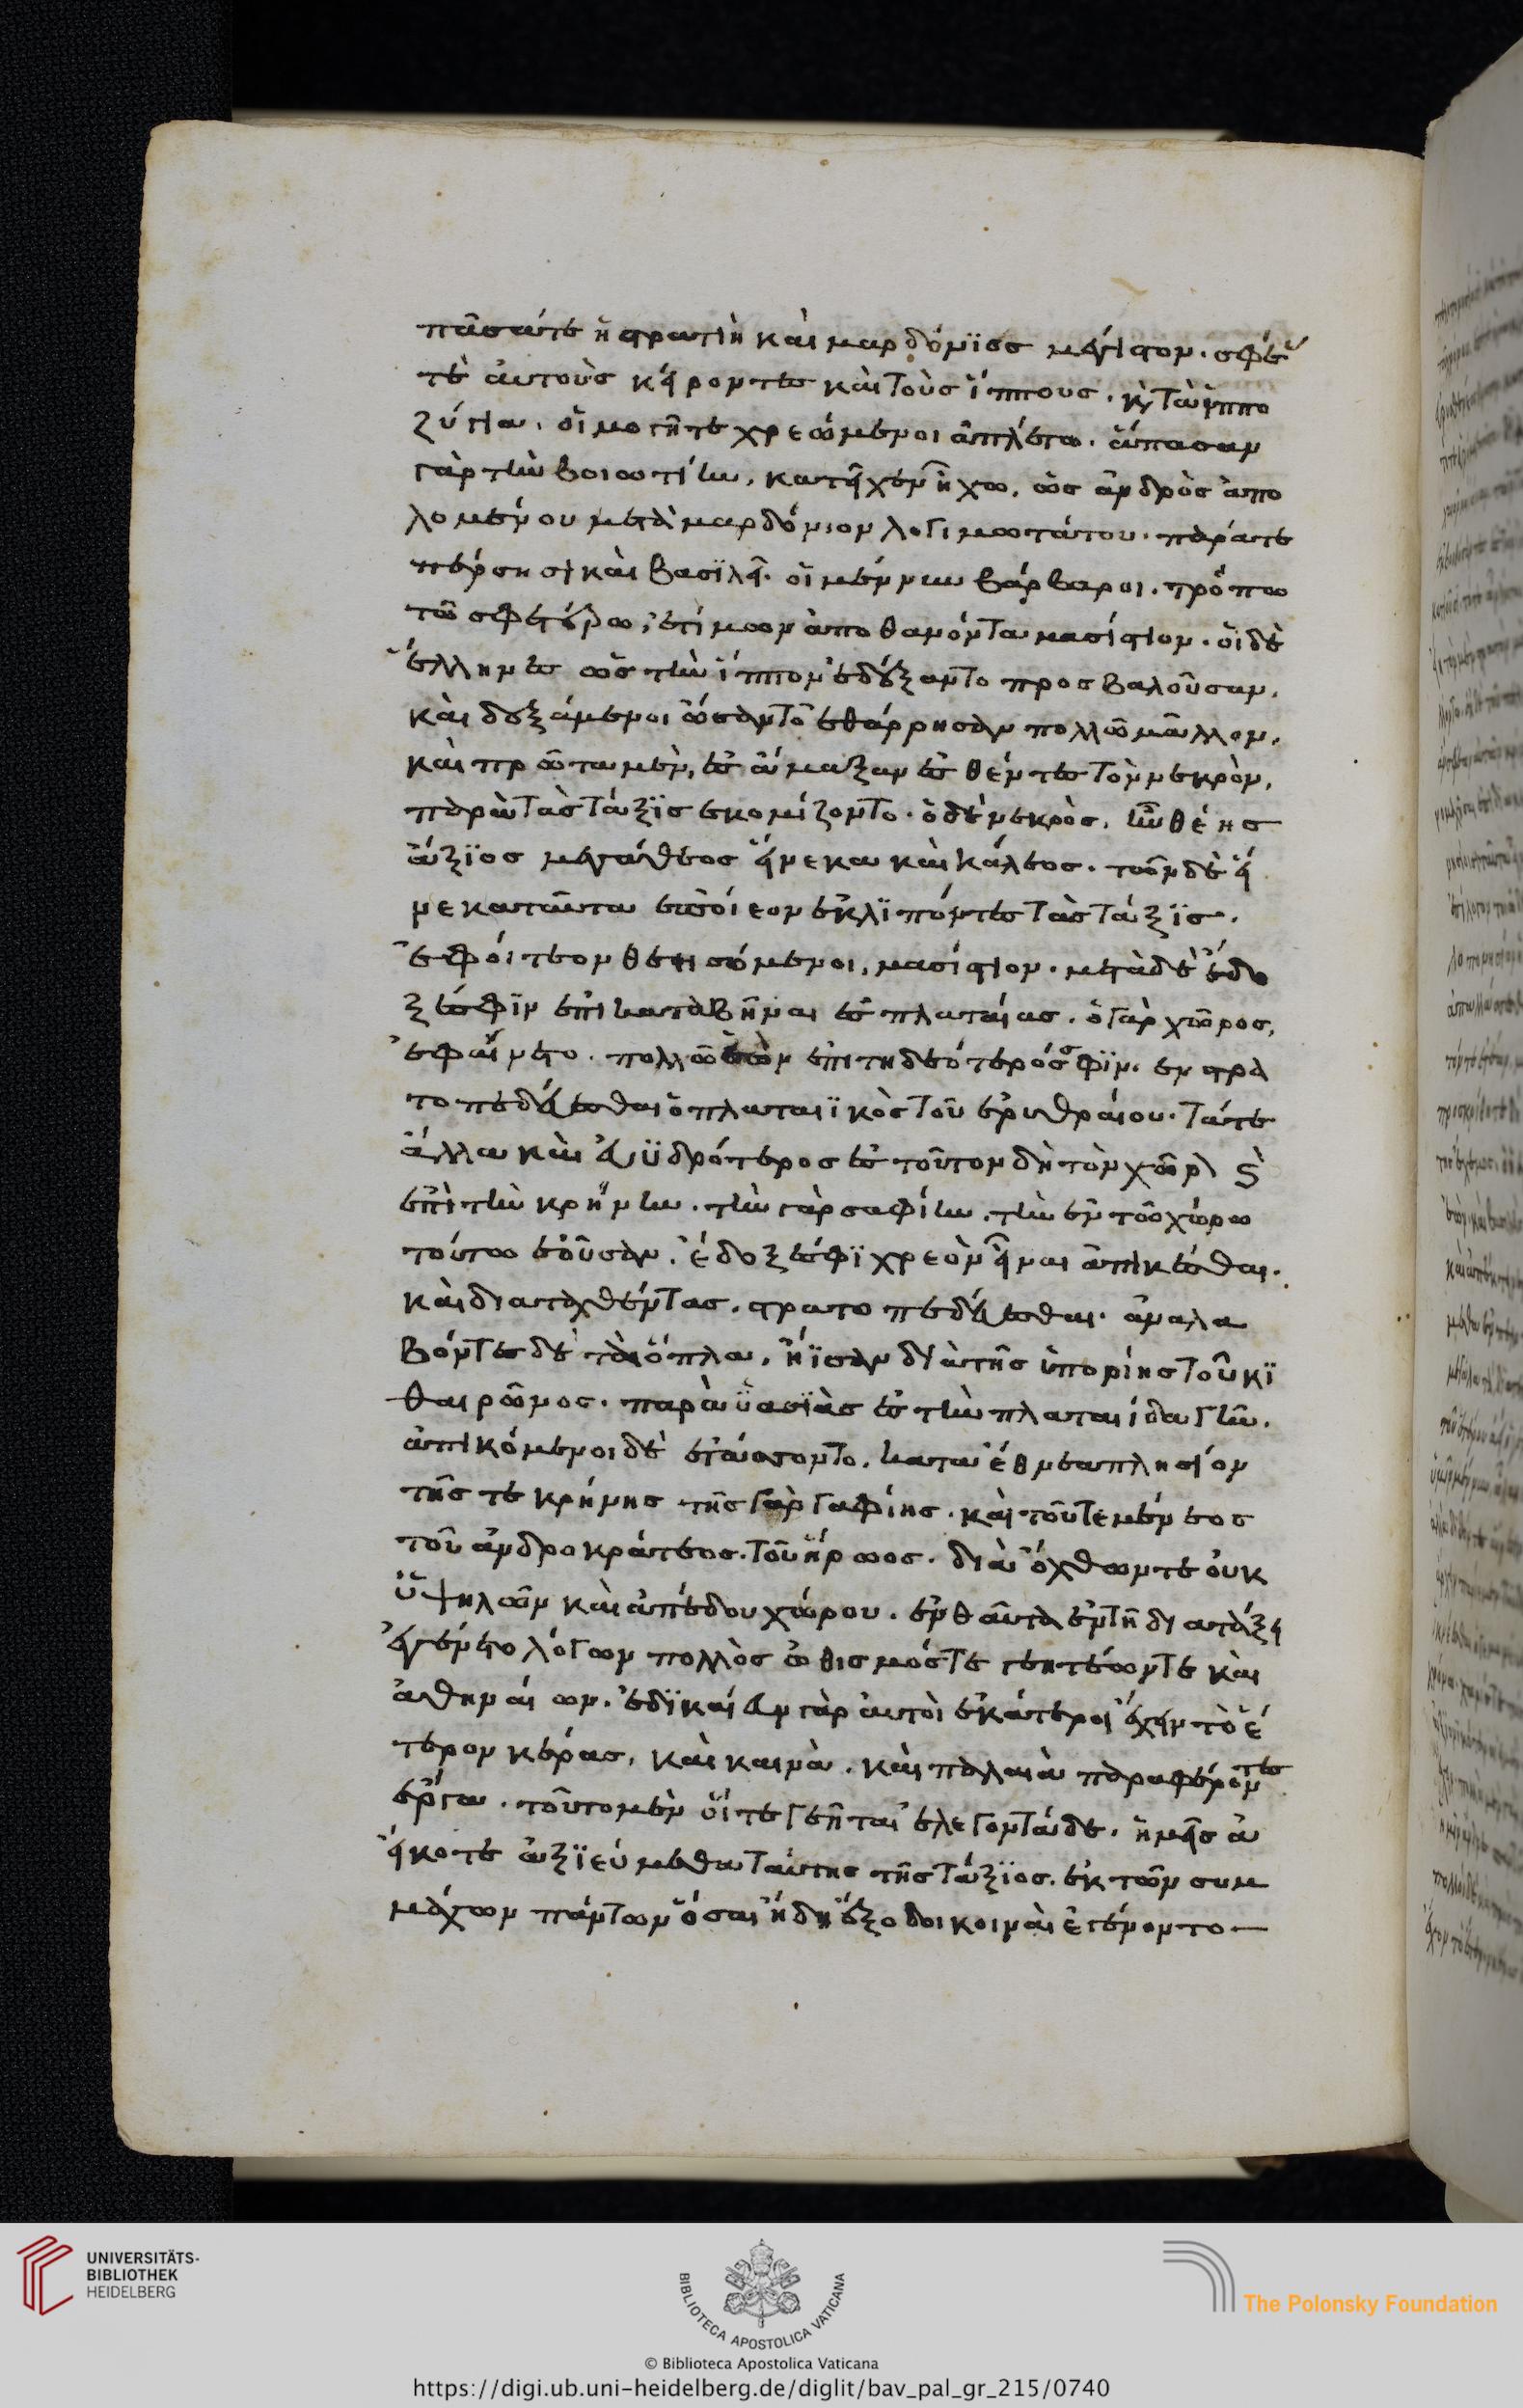 πᾶσά τε ἡ στρατιὴ καὶ μαρδόνιος μέγιστον. σφέας
τε αὐτοὺς κείροντες καὶ τοὺς ἵππους. καὶ τὰ ὑπο
ζύγια. οἰμωγῆ τε χρεώμενοι ἀπλέτω. ἅπασαν
γὰρ τὴν βοιωτίην, κατεῖχεν ἠχὼ, ὡς ἀνδρὸς ἀπο
λομένου μετὰ μαρδόνιον λογιμωτάτου. παρά τε
πέρσησι καὶ βασιλεῖ. οἱ μέν νυν βάρβαροι. τρόπω
τῶ σφετέρω, ἐτίμων ἀποθανόντα μασίστιον. οἱ δὲ
ἕλληνες ὡς τὴν ἵππον ἐδέξαντο προσβαλοῦσαν,
καὶ δεξάμενοι ὤσαντο ἐθάρρησαν πολλῶ μᾶλλον,
καὶ πρῶτα μὲν, ἐς ἅμαξαν ἐσθέντες τὸν νεκρὸν,
παρὰ τὰς τάξις ἐκομίζοντο. ὁ δὲ νεκρὸς, ἦν θέης
ἄξιος μεγάθεος εἵνεκα καὶ κάλεος. τῶν δὲ εἵ
νεκα ταῦτα ἐποίεον ἐκλιπόντες τὰς τάξις.
ἐφοίτεον θεησόμενοι, μασίστιον. μετὰ δὲ ἔδο
ξέ σφιν ἐπικαταβῆναι ἐς πλαταιάς. ὁ γὰρ χῶρος,
ἐφαίνετο. πολλῶ ἐὼν ἐπιτηδεότερός σφιν. ἐνστρα
τοπεδεύεσθαι ὁ πλαταιϊκὸς τοῦ ἐρυθραίου. τά τε
ἄλλα καὶ εὐϋδρότερος ἐς τοῦτον δὴ τὸν χῶρον καὶ
ἐπὶ τὴν κρήνην. τὴν γαργαφίην. τὴν ἐν τῶ χώρω
τούτω ἐοῦσαν. ἔδοξέ σφι χρεὸν εἶναι ἀπικέσθαι.
καὶ διαταχθέντας. στρατοπεδεύεσθαι. ἀναλα
βόντες δὲ τὰ ὅπλα, ἤϊσαν διὰ τῆς ὑπορίης τοῦ κι
θαιρῶνος. παρὰ ὑασιὰς ἐς τὴν πλαταιίδα γῆν.
ἀπικόμενοι δὲ ἐτάσσοντο. κατὰ ἔθνεα πλησίον
τῆς τε κρήνης τῆς γαργαφίης. καὶ τοῦ τεμένεος
τοῦ ἀνδροκράτεος. τοῦ ἥρωος. διὰ ὄχθων τε οὐκ
ὑψηλῶν καὶ ἀπέδου χώρου. ἐνθαῦτα ἐν τῆ διατάξει
ἐγένετο λόγων πολλὸς ὠθισμός τε γεητέων τε καὶ
ἀθηναίων. ἐδικαίευν γὰρ αὐτοὶ ἑκάτεροι ἔχειν τὸ ἕ
τερον κέρας, καὶ καινὰ. καὶ παλαιὰ παραφέροντες
ἔργα. τοῦτο μὲν οἵ τε γεῆται ἔλεγον τάδε. ἡμεῖς ἀ
εί κοτε ἀξιεύμεθα ταύτης τῆς τάξιος. ἐκ τῶν συμ
μάχων πάντων ὅσαι ἤδη ἔξοδοι κοιναὶ ἐγένοντο
UNIVERSITÄTS-
BIBLIOTHEK
HEIDELBERG
BIBLIOTECA APOSTOLICA VATICANA
The Polonsky Foundation
© Biblioteca Apostolica Vaticana
https://digi.ub.uni-heidelberg.de/diglit/bav_pal_gr_215/0740